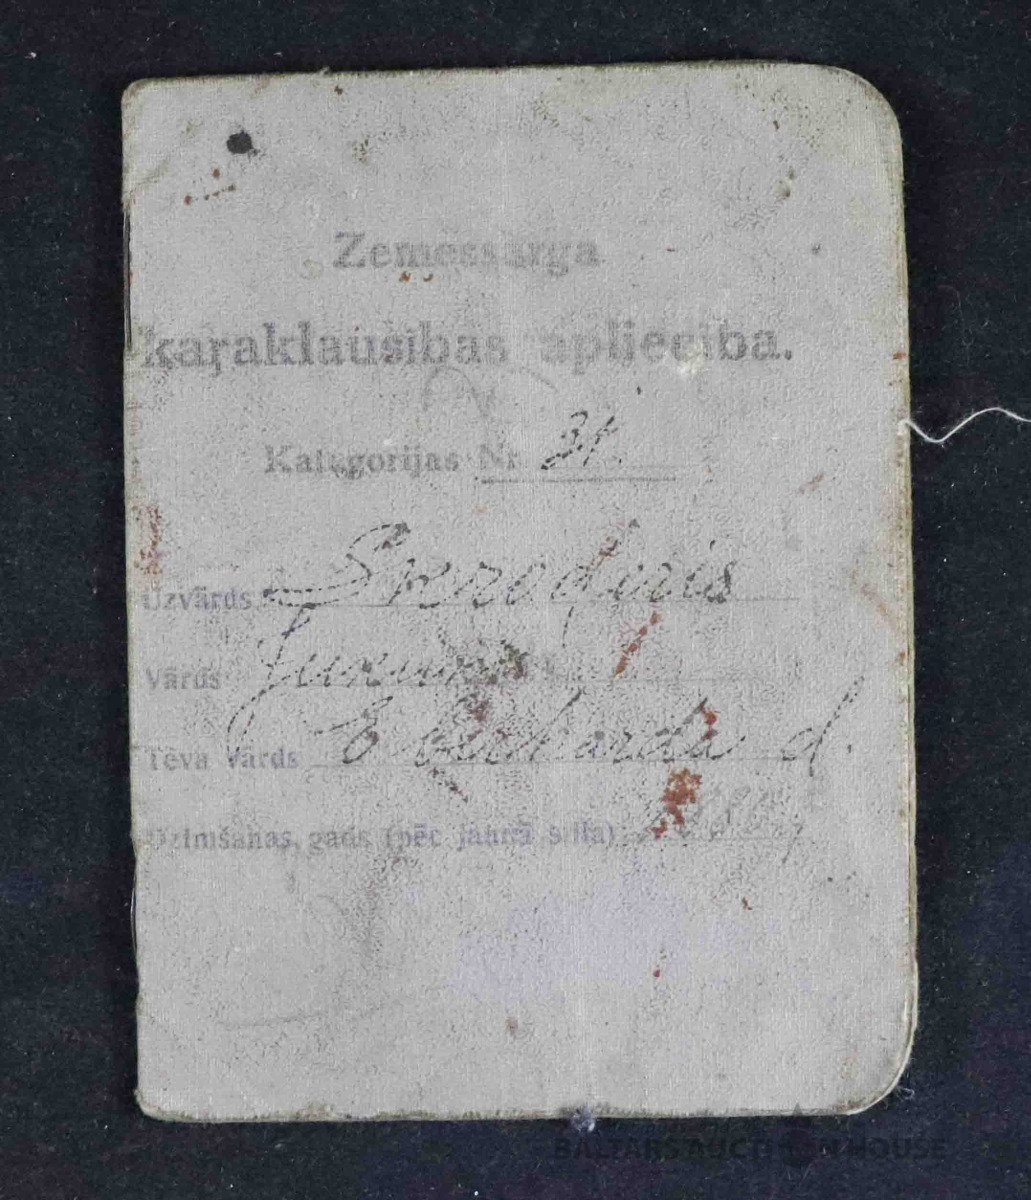 Zemessarga
kaŗaklausības apliecība.
Kategorijas Nr 31.
Uzvārds
Vārds
Tēva vārds Eberharda d.
Dzimšanas gads (pēc jaunā stila)
BALTARS AUCTION HOUSE